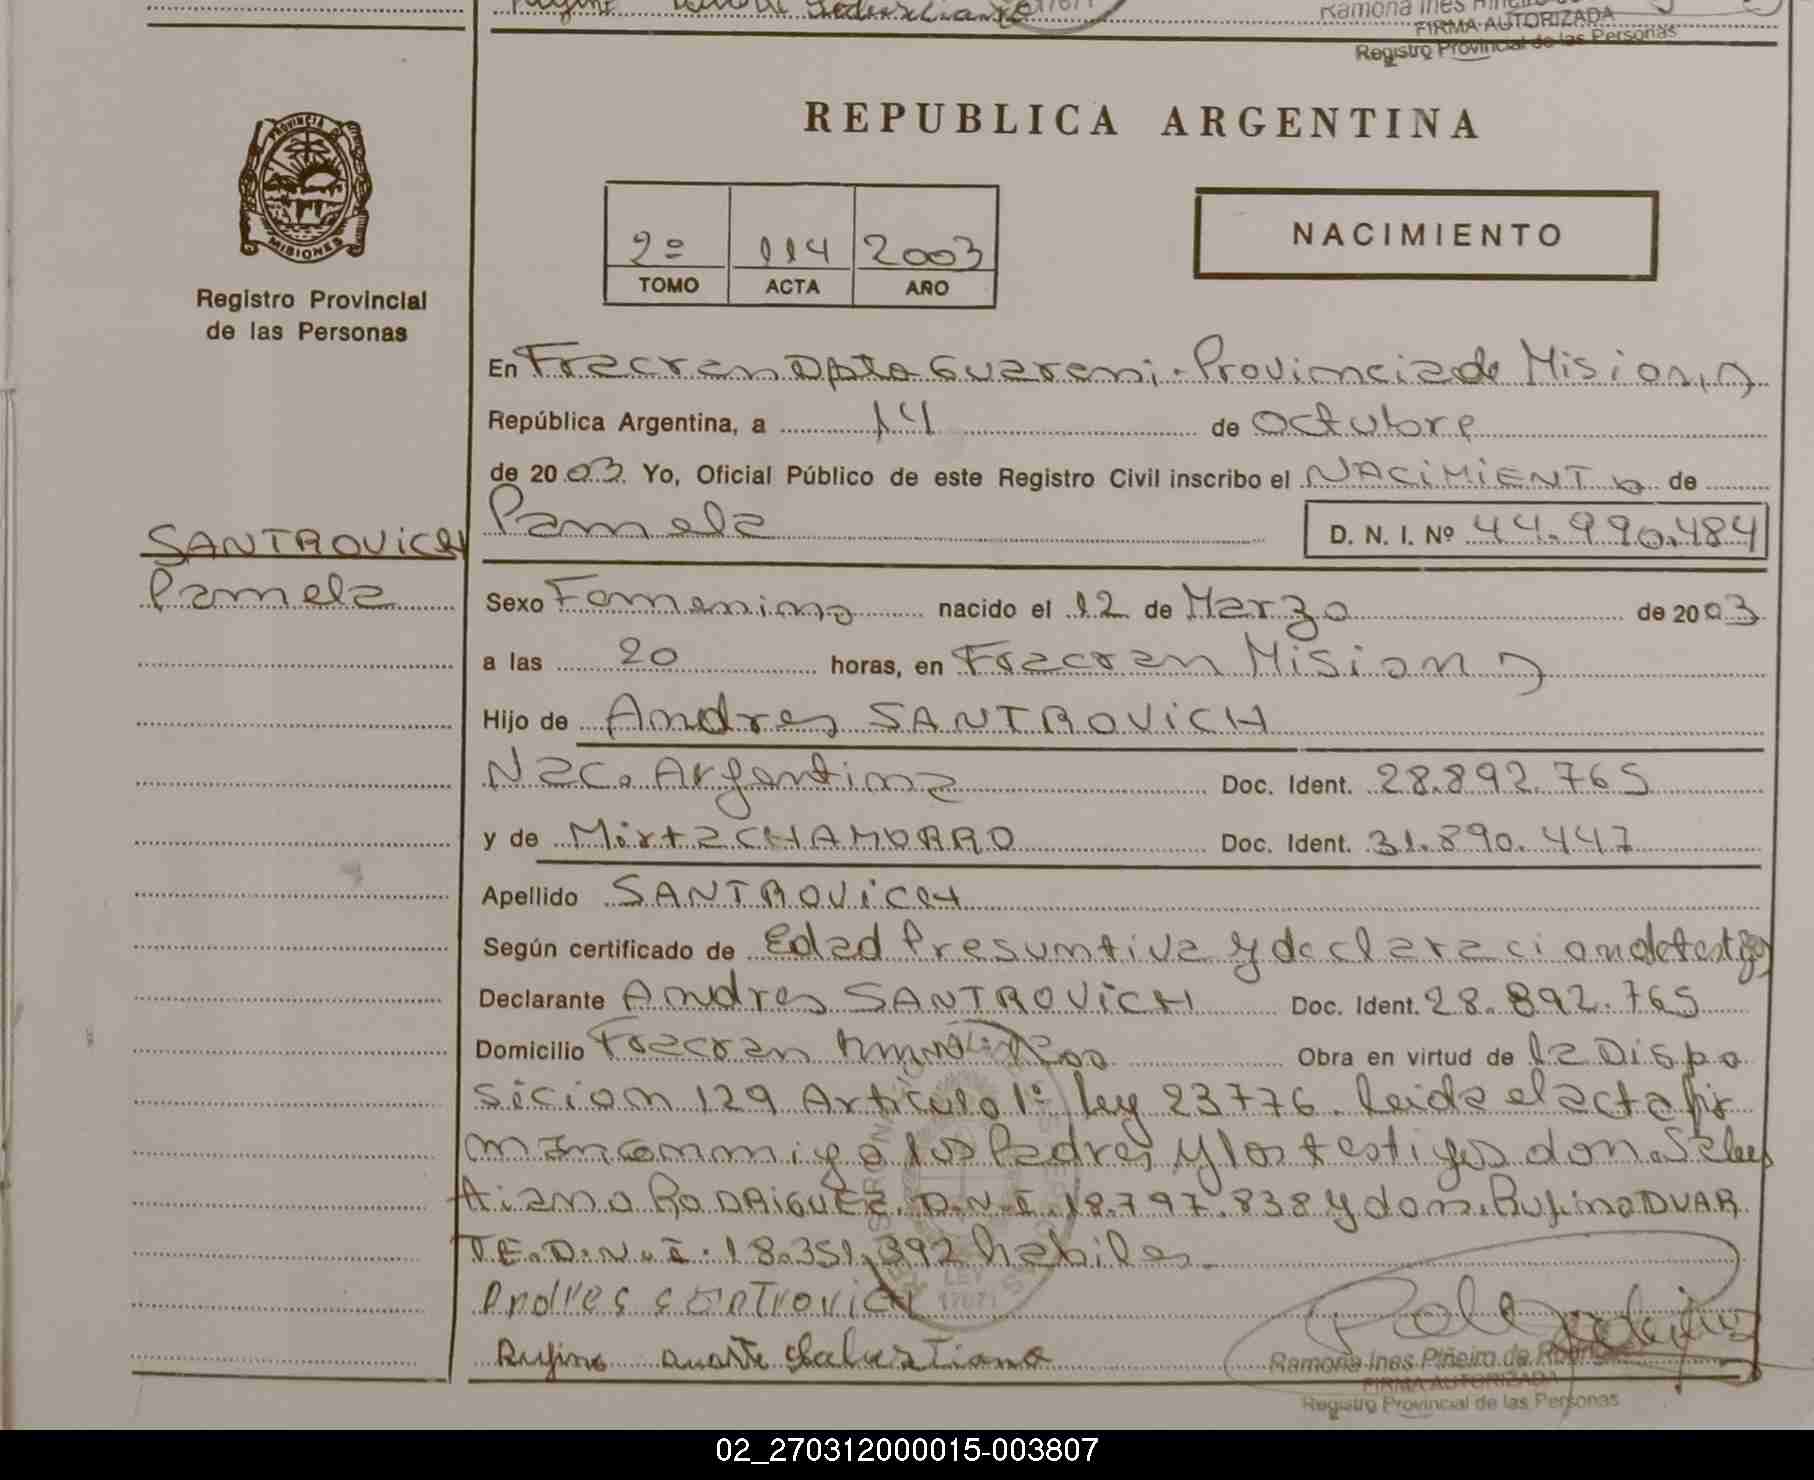 Ramona Ines Piñeiro de
FIRMA AUTORIZADA
Registro Provincial de las Personas
PROVINCIA DE
MISIONES
Registro Provincial
de las Personas
REPUBLICA ARGENTINA
2º 114 2003
TOMO ACTA AÑO
NACIMIENTO
En Fracran Dpto Guarani - Provincia de Misiones
República Argentina, a 14 de Octubre
de 2003 Yo, Oficial Público de este Registro Civil inscribo el NACIMIENTO de
Pamela D. N. I. Nº 44.990.484
SANTROVICH
Pamela
Sexo Femenino nacido el 12 de Marzo de 2003
a las 20 horas, en Fracran Misiones
Hijo de Andres SANTROVICH
Nac. Argentina Doc. Ident. 28.892.765
y de Mirta CHAMORRO Doc. Ident. 31.890.447
Apellido SANTROVICH
Según certificado de Edad Presuntiva y declaracion de testigos
Declarante Andres SANTROVICH Doc. Ident. 28.892.765
Domicilio Fracran Obra en virtud de la Dispo
sicion 129 Articulo 1º ley 23776. Leida el acta fir
man conmigo los Padres y los testigos don. Salus
tiano RODRIGUEZ. D.N.I. 18.797.838 y don. Rufino DUAR
TE. D.N.I. 18.351.392 habiles.
Andres santrovich
Rufino duarte Salustiano
LEY
17671
Ramona Ines Piñeiro de Rodriguez
FIRMA AUTORIZADA
Registro Provincial de las Personas
02_270312000015-003807